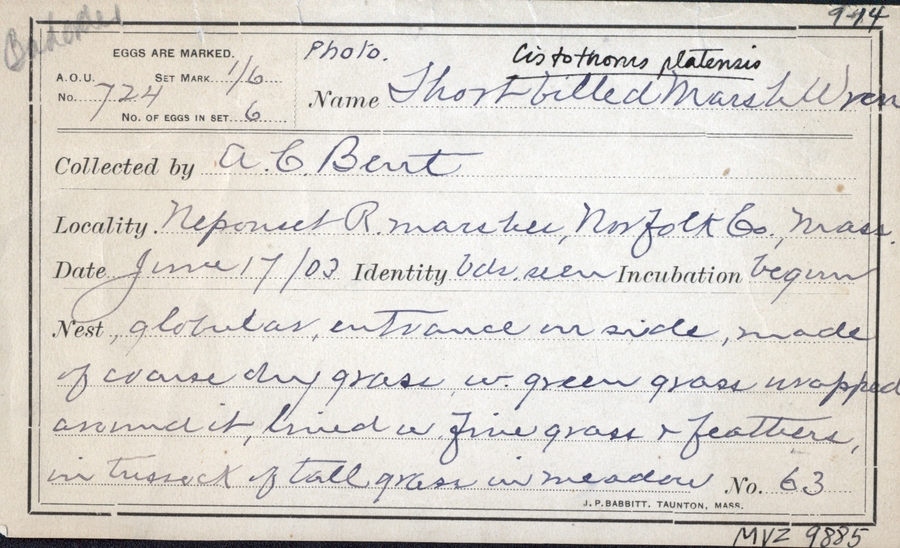 944
EGGS ARE MARKED. Photo. Cistothorus platensis
A.O.U. No. 724 SET MARK 1/6
Name Short billed Marsh Wren
No. OF EGGS IN SET 6
Collected by A. C. Bent
Locality. Neponset R. marshes, Norfolk Co., Mass.
Date June 17/03 Identity bds. seen Incubation begun
Nest, globular, entrance on side, made
of coarse dry grass w. green grass wrapped
around it, lined w. fine grass & feathers,
in tussock of tall grass in meadow No. 63
J. P. BABBITT, TAUNTON, MASS.
MVZ 9885